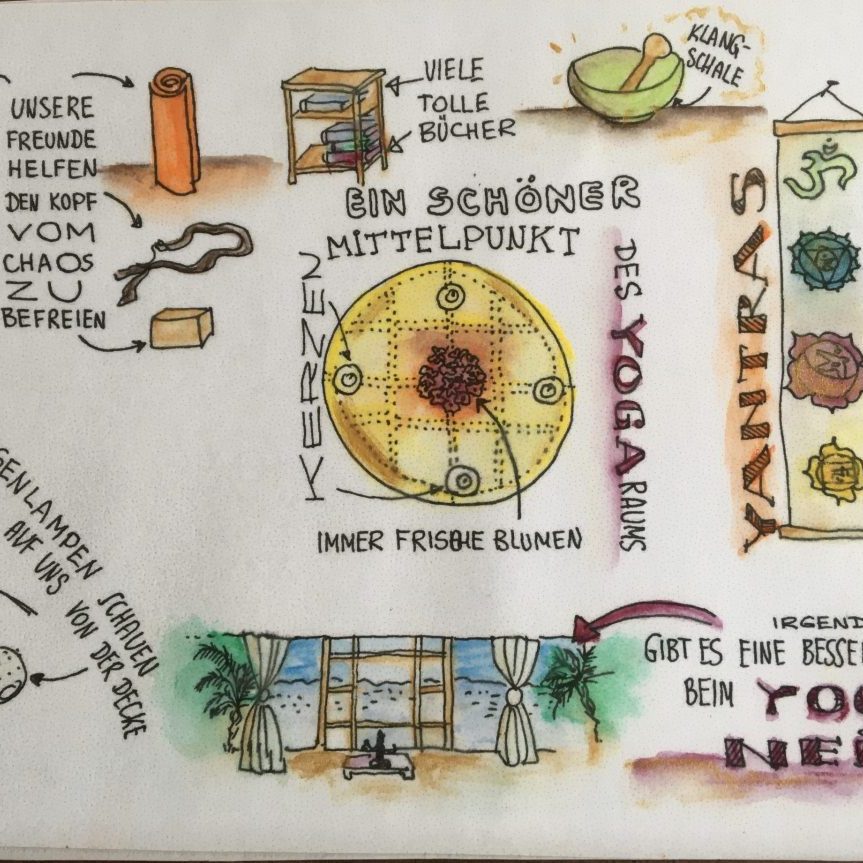 UNSERE
FREUNDE
HELFEN
DEN KOPF
VOM
CHAOS
ZU
BEFREIEN
VIELE
TOLLE
BÜCHER
KLANG-
SCHALE
EIN SCHÖNER
MITTELPUNKT
DES YOGA RAUMS
KERZEN
IMMER FRISCHE BLUMEN
YANTRAS
ENLAMPEN SCHAUEN
AUF UNS VON DER DECKE
IRGEND
GIBT ES EINE BESSE
BEIM YO
NE